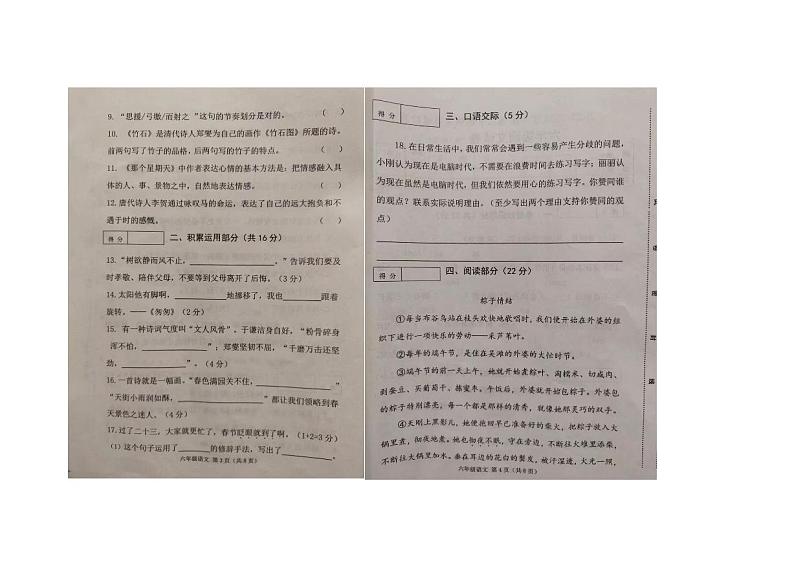 9. “思援/弓缴/而射之 ”这句的节奏划分是对的。 （ ）
10. 《竹石》是清代诗人郑燮为自己的画作《竹石图》所题的诗。
前两句写了竹子的品格，后两句写了竹子的特点。 （ ）
11. 《那个星期天》中作者表达心情的基本方法是：把情感融入具
体的人、事、景物之中，自然地表达情感。 （ ）
12. 唐代诗人李贺通过咏叹马的命运，表达了自己的远大抱负和不
遇于时的感慨。 （ ）
得 分
二、积累运用部分（共 16 分）
13. “树欲静而风不止，____________________。”告诉我们要及
时孝敬、陪伴父母，不要等到父母离开了后悔。（3 分）
14. 太阳他有脚啊，____________地挪移了，我也_________跟着
旋转。——《匆匆》（2 分）
15. 有一种诗词气度叫“文人风骨”。于谦洁身自好，“粉骨碎身
浑不怕，_______________”；郑燮坚韧不屈，“千磨万击还坚
劲，_______________”。（4 分）
16. 一首诗就是一幅画。“春色满园关不住，_______________ ”
“天街小雨润如酥，_______________ ”都让我们领略到春
天景色之迷人。（4 分）
17. 过了二十三，大家就更忙了，春节眨眼就到了啊。（1+2=3 分）
（1）这个句子运用了________的修辞手法，写出了____________。
六年级语文 第 3 页（共 8 页）
得 分
三、口语交际（5 分）
18. 在日常生活中，我们常常会遇到一些容易产生分歧的问题，
小刚认为现在是电脑时代，不需要在浪费时间去练习写字；丽丽认
为现在虽然是电脑时代，但我们依然要用心的练习写字，你赞同谁
的观点？联系实际说明理由。（至少写出两个理由支持你赞同的观
点）
得 分
四、阅读部分（22 分）
粽子情结
①每当布谷鸟站在枝头欢快地歌唱时，我们便开始在外婆的组
织下进行一项快乐的劳动——采芦苇叶。
②每年的端午节，是住在吴滩的外婆的大忙时节。
③端午节的前一天上午，她就开始煮粽叶、淘糯米、切咸肉、
剥蚕豆、买葡萄干、拣蜜枣。午饭后，外婆就开始包粽子。外婆包
的粽子特别漂亮，每一个都是那样的清秀，就像她那灵巧的双手。
④天刚上黑影儿，她便抱来早已准备好的柴火，把粽子放入大
锅里煮，彻夜地煮。她也彻夜不眠，守在旁边，不断往大堆里添柴，
不断往大锅里加水。垂在耳边的花白的鬓发，被汗湿透，火光一照，
六年级语文 第 4 页（共 8 页）